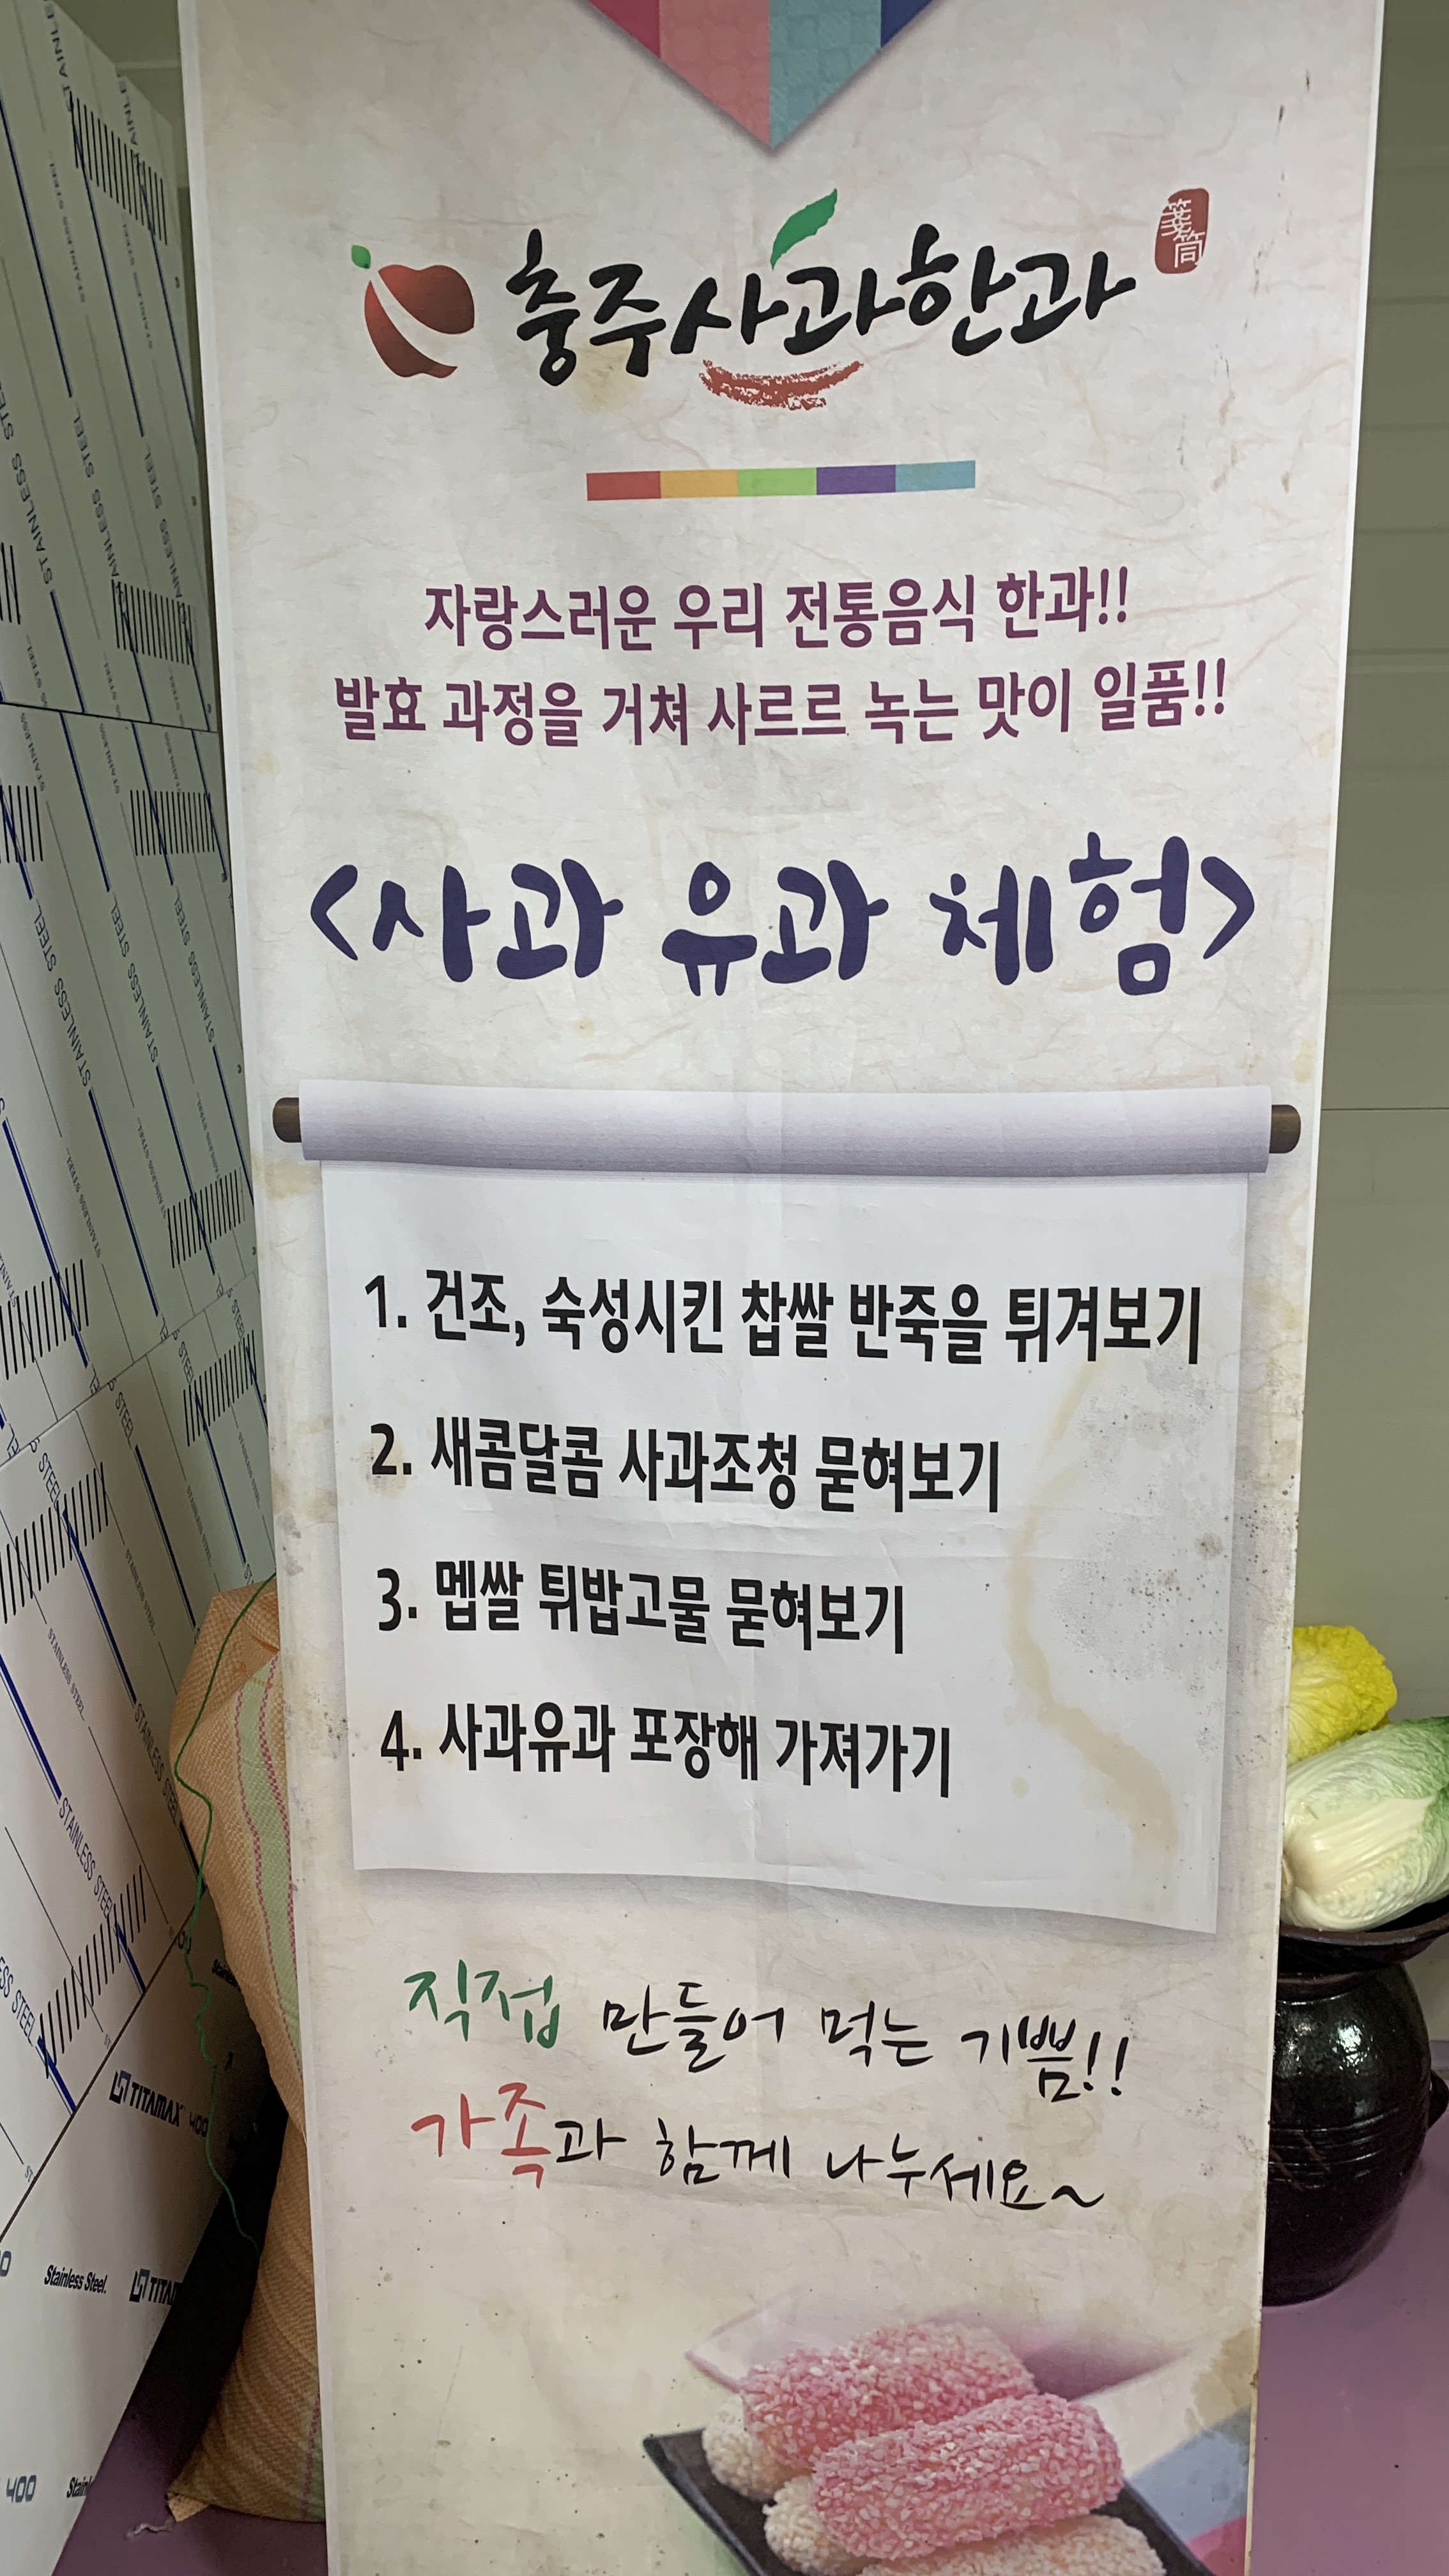 충주사과한과
자랑스러운 우리 전통음식 한과!!
발효 과정을 거쳐 사르르 녹는 맛이 일품!!
<사과 유과 체험>
1. 건조, 숙성시킨 찹쌀 반죽을 튀겨보기
2. 새콤달콤 사과조청 묻혀보기
3. 멥쌀 튀밥고물 묻혀보기
4. 사과유과 포장해 가져가기
직접 만들어 먹는 기쁨!!
가족과 함께 나누세요~
STAINLESS STEEL
STAINLESS STEEL
STAINLESS STEEL
TITAMAX 400
Stainless Steel
400